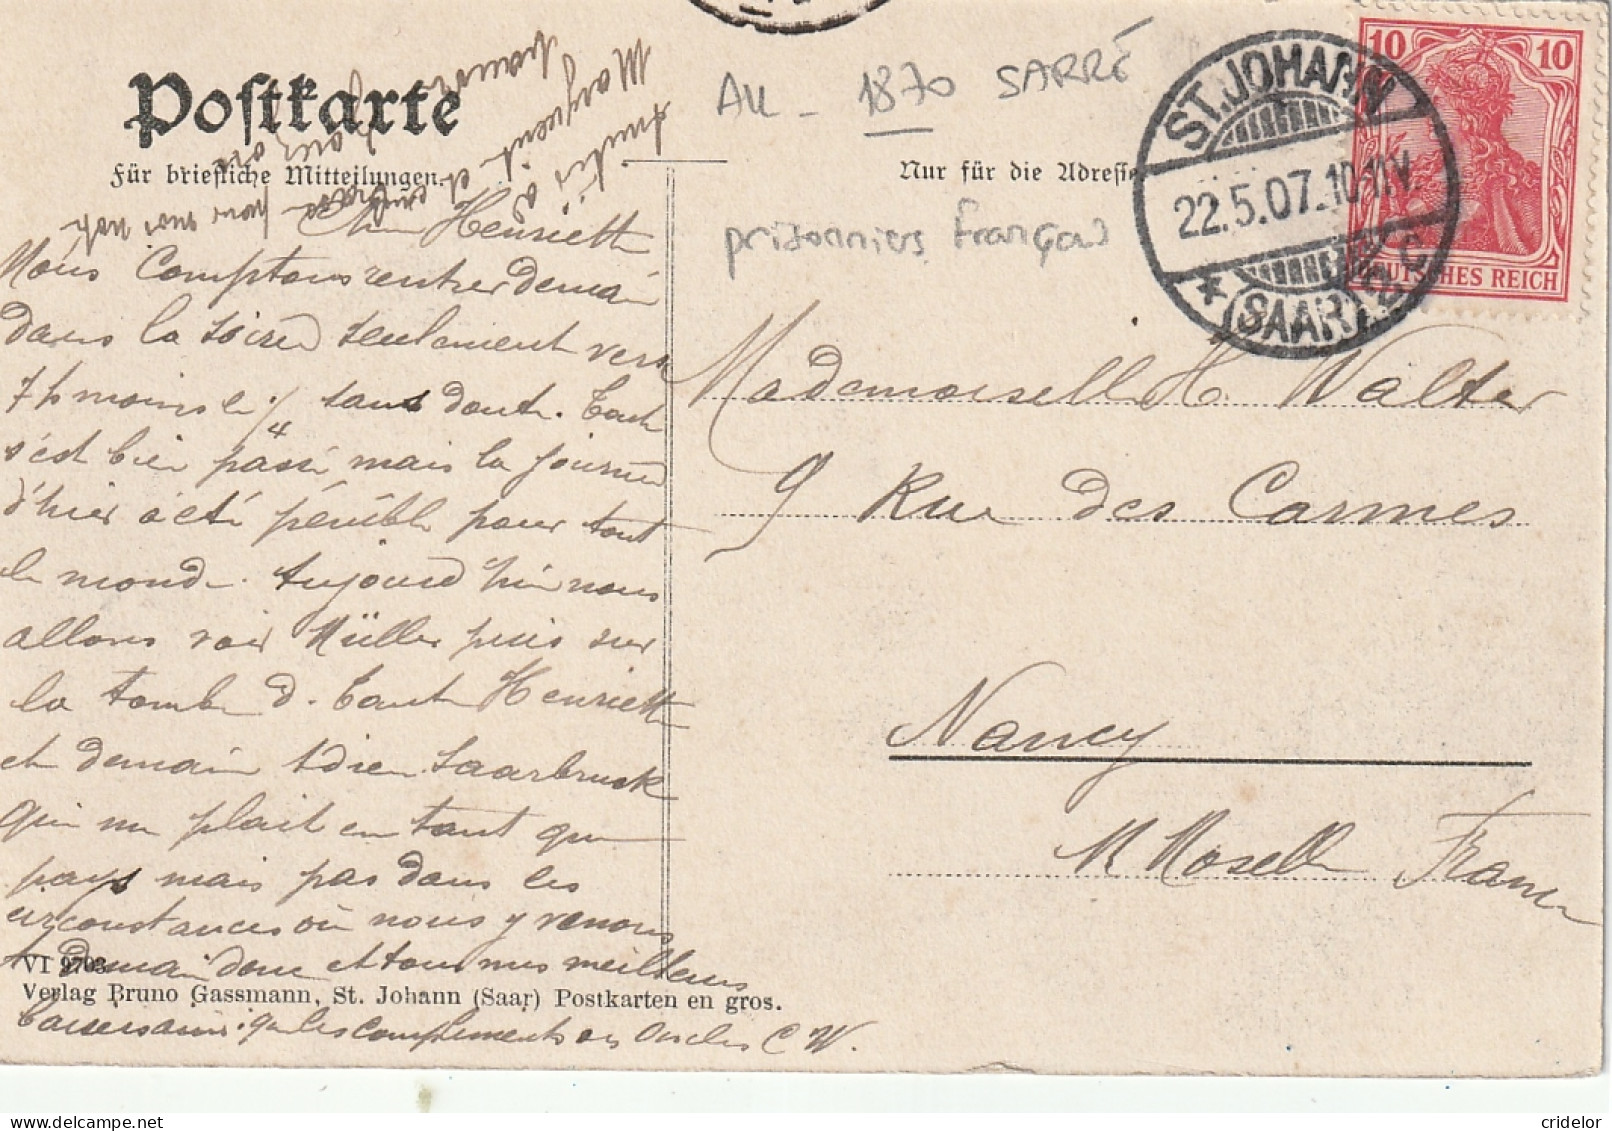 Postkarte
Für briefliche Mitteilungen.
Nur für die Adresse
All - 1870 SARRE
prisonniers français
ST. JOHANN
22.5.07.10-11V.
* (SAAR) 2c
10 10
DEUTSCHES REICH
Amitiés à
Marguerite et
pour moi
Chère Henriette
Nous comptons rentrer demain
dans la soirée seulement vers
7 h moins le 1/4 sans doute. Tout
s'est bien passé mais la journée
d'hier a été pénible pour tout
le monde. Aujourd'hui nous
allons voir Müller puis sur
la tombe d. tante Henriette
et demain adieu Saarbruck
qui me plait en tant que
pays mais pas dans les
circonstances où nous y venons
A demain donc et tous mes meilleurs
baisers ainsi que les compliments des oncles C W.
Mademoiselle H. Walter
9 Rue des Carmes
Nancy
M Moselle France
VI 9703
Verlag Bruno Gassmann, St. Johann (Saar) Postkarten en gros.
cridelor